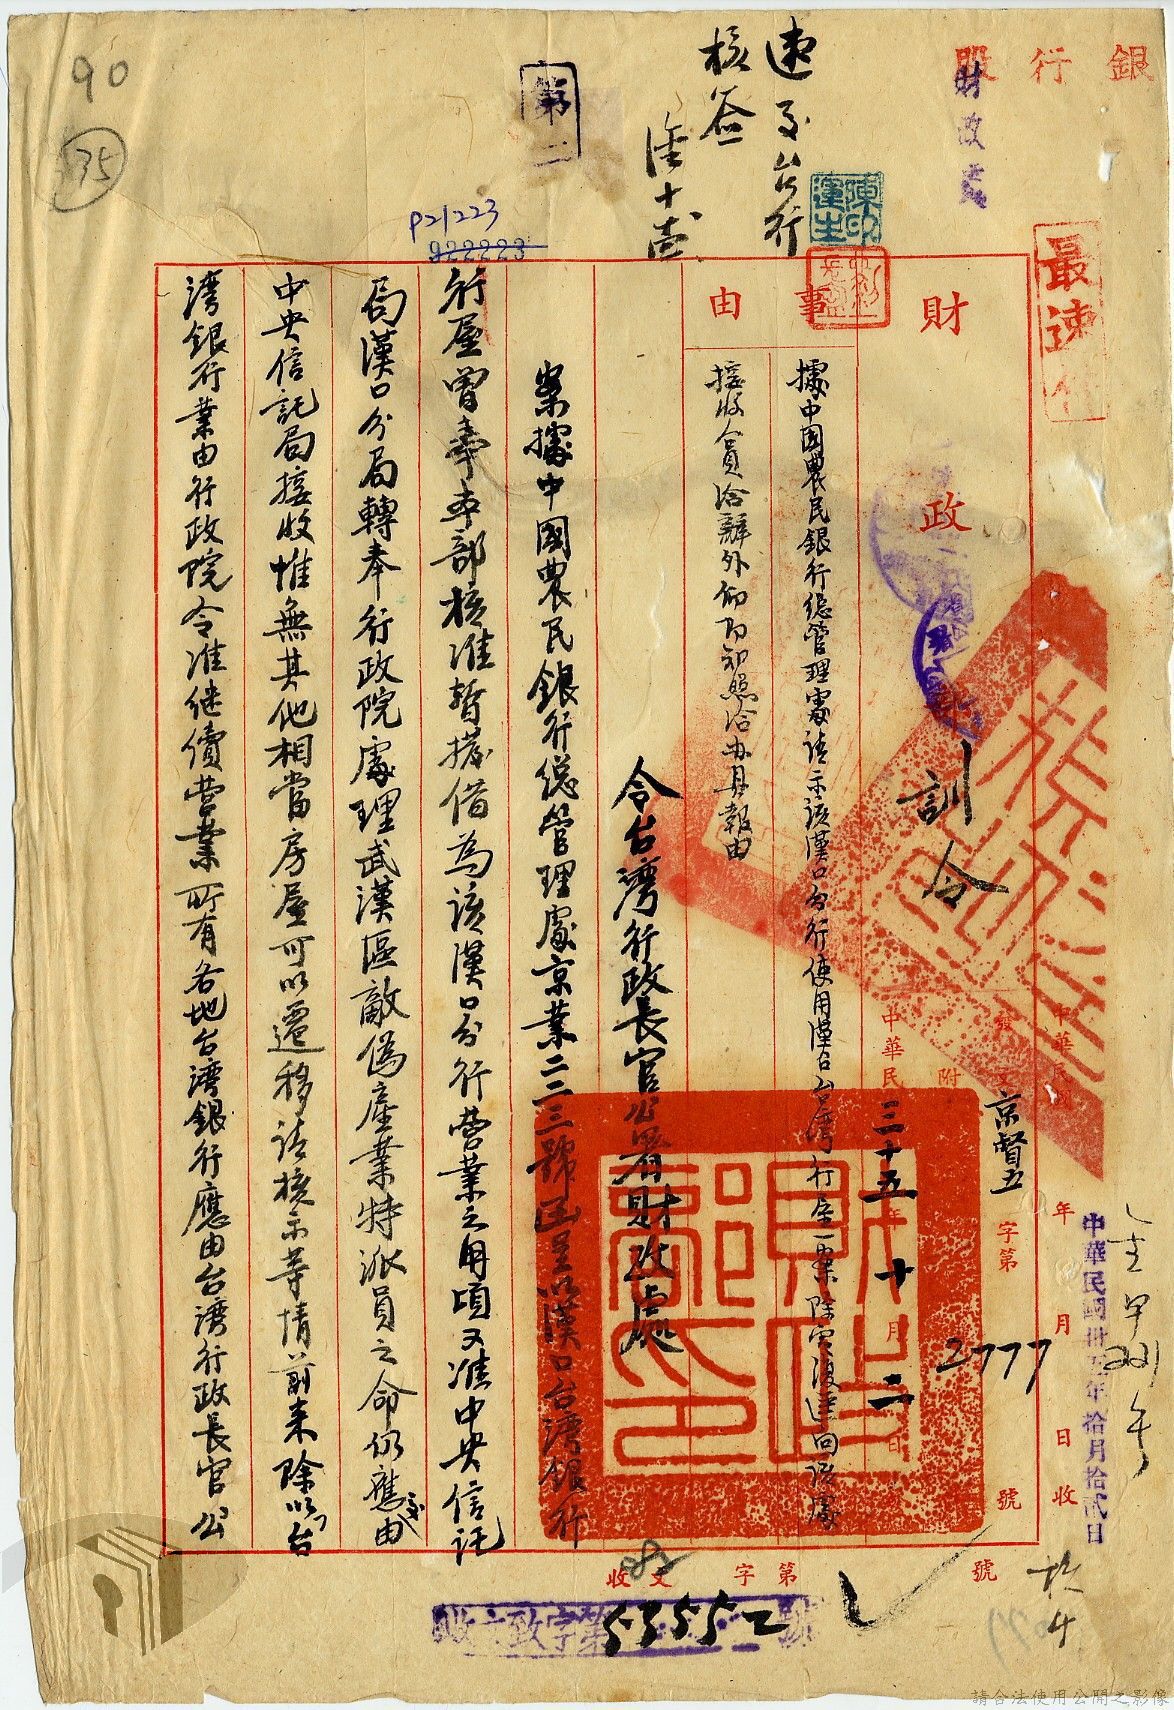 銀行股
財政處
最速件
速交台行
核簽
第二
90
35
P21223
922223
財政
訓令
事由
據中国農民銀行總管理處請示該漢口分行使用漢口台湾行屋一案除電復逕向該處
接收人員洽辦外仰即知照洽办具報由
中華民國
年月日收
發文京督五字第2777號
附
中華民
三十五年十月二日
中華民國卅五年拾月拾貳日
令台灣行政長官公署財政處
案據中國農民銀行總管理處京業二二三號函呈以漢口台灣銀行
行屋曾奉本部核准暫撥借為該漢口分行營業之用頃又准中央信託
局漢口分局轉奉行政院處理武漢區敵偽產業特派員之命仍應交由
中央信託局接收惟無其他相當房屋可以遷移請核示等情前来除以台
湾銀行業由行政院令准继續营業所有各地台湾銀行應由台湾行政長官公
收文字第號
53552
請合法使用公開之影像